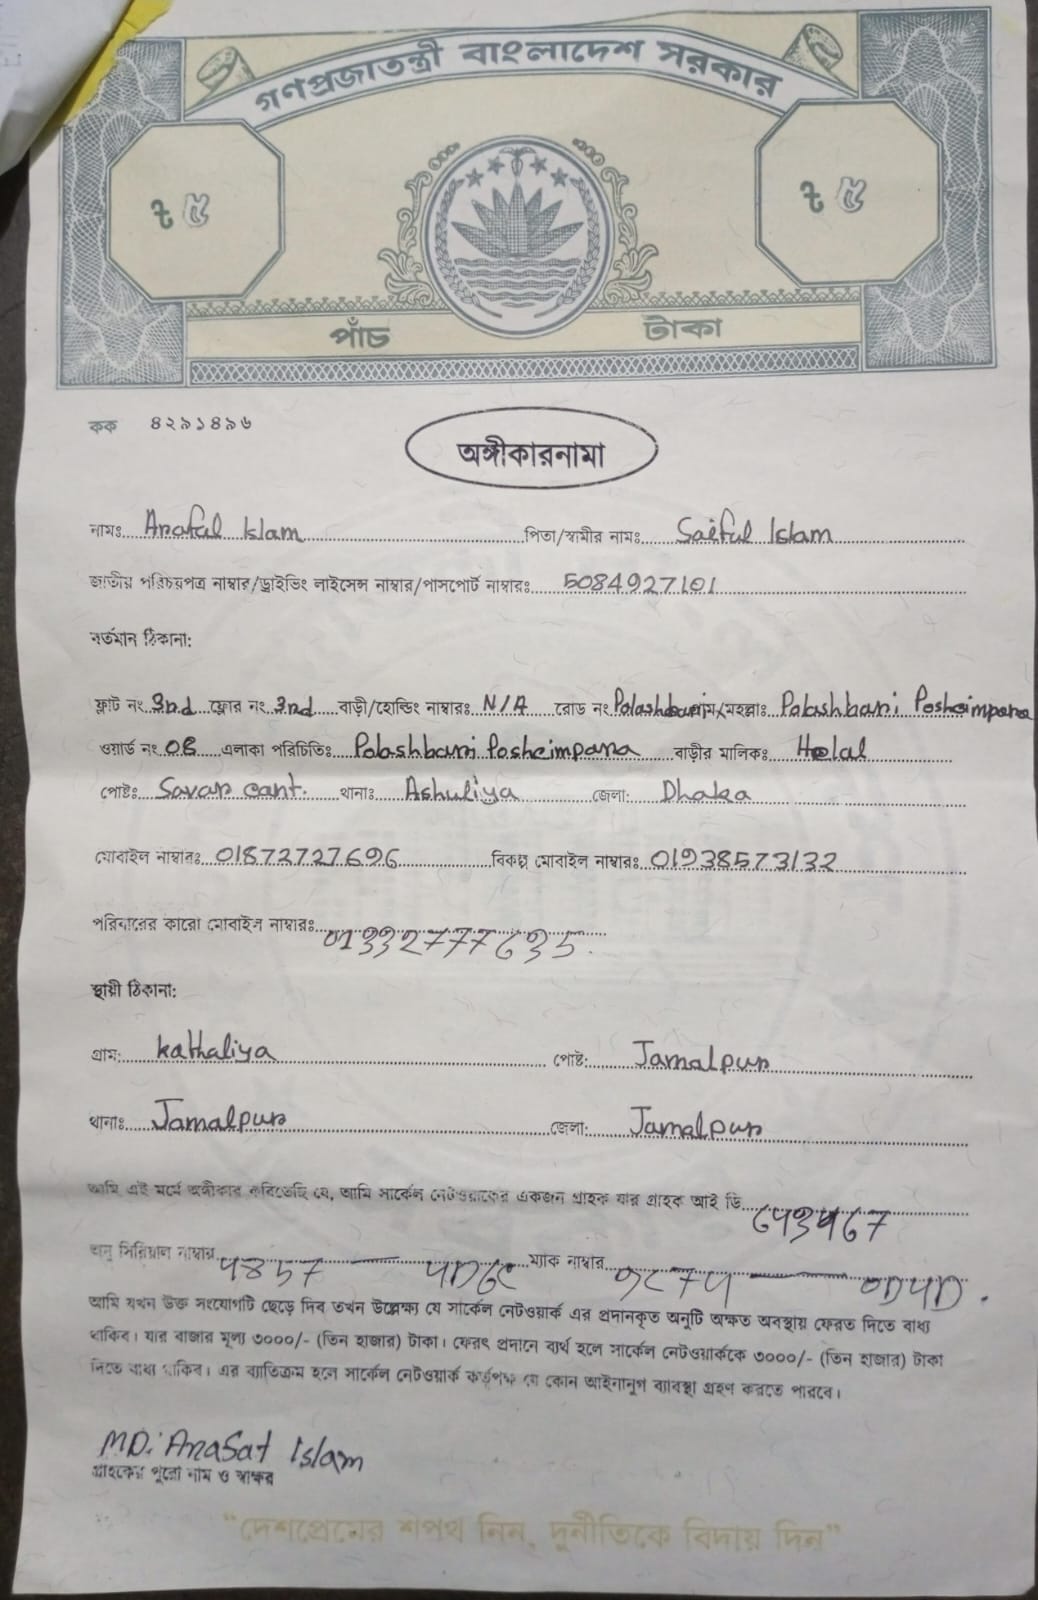 গণপ্রজাতন্ত্রী বাংলাদেশ সরকার
৳ ৫ ৳ ৫
পাঁচ টাকা
কক ৪২৯১৪৯৬
অঙ্গীকারনামা
নামঃ Arafat Islam পিতা/স্বামীর নামঃ Saiful Islam
জাতীয় পরিচয়পত্র নাম্বার/ড্রাইভিং লাইসেন্স নাম্বার/পাসপোর্ট নাম্বারঃ 5084927101
বর্তমান ঠিকানা:
ফ্লাট নং 3nd ফ্লোর নং 3nd বাড়ী/হোল্ডিং নাম্বারঃ N/A রোড নং Palashbari গ্রাম/মহল্লাঃ Palashbari Posheimpara
ওয়ার্ড নং 08 এলাকা পরিচিতিঃ Palashbari Posheimpara বাড়ীর মালিকঃ Helal
পোষ্টঃ Savar Cant. থানাঃ Ashuliya জেলা: Dhaka
মোবাইল নাম্বারঃ 01872727696 বিকল্প মোবাইল নাম্বারঃ 01938573132
পরিবারের কারো মোবাইল নাম্বারঃ 01332777635.
স্থায়ী ঠিকানা:
গ্রাম: Kathaliya পোষ্ট: Jamalpur
থানাঃ Jamalpur জেলা: Jamalpur
আমি এই মর্মে অঙ্গীকার করিতেছি যে, আমি সার্কেল নেটওয়ার্কের একজন গ্রাহক যার গ্রাহক আই ডি
অনু সিরিয়াল নাম্বার ম্যাক নাম্বার
আমি যখন উক্ত সংযোগটি ছেড়ে দিব তখন উল্লেক্ষ্য যে সার্কেল নেটওয়ার্ক এর প্রদানকৃত অনুটি অক্ষত অবস্থায় ফেরত দিতে বাধ্য
থাকিব। যার বাজার মূল্য ৩০০০/- (তিন হাজার) টাকা। ফেরৎ প্রদানে ব্যর্থ হলে সার্কেল নেটওয়ার্ককে ৩০০০/- (তিন হাজার) টাকা
দিতে বাধ্য থাকিব। এর ব্যাতিক্রম হলে সার্কেল নেটওয়ার্ক কর্তৃপক্ষ যে কোন আইনানুগ ব্যাবস্থা গ্রহণ করতে পারবে।
MD. Arafat Islam
গ্রাহকের পুরো নাম ও স্বাক্ষর
"দেশপ্রেমের শপথ নিন, দুর্নীতিকে বিদায় দিন"